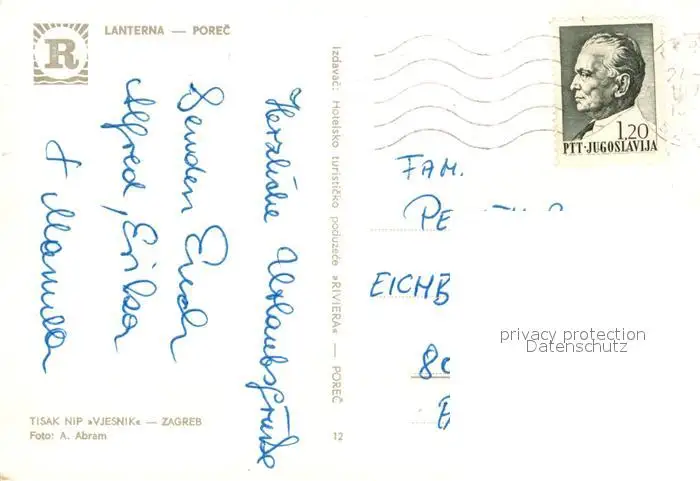 R
LANTERNA — POREČ
Herzliche Urlaubsgrüße
Senden Euch
Alfred, Erika
+ Manuela
TISAK NIP »VJESNIK« — ZAGREB
Foto: A. Abram
Izdavač: Hotelsko turističko poduzeće »RIVIERA« — POREČ
12
1.20
PTT-JUGOSLAVIJA
FAM.
EICHB
privacy protection
Datenschutz